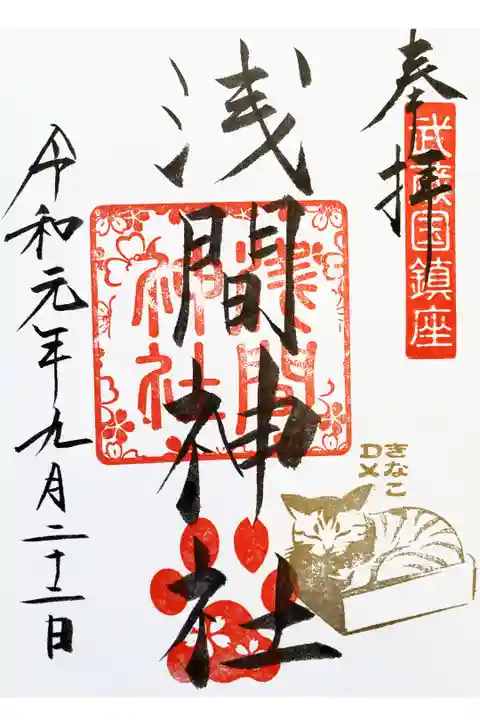 奉拝
武蔵国鎮座
浅間神社
浅間
神社
令和元年九月二十二日
きなこ
DX